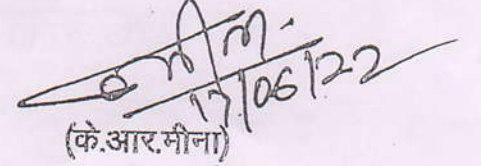 17/06/22
(के.आर.मीना)